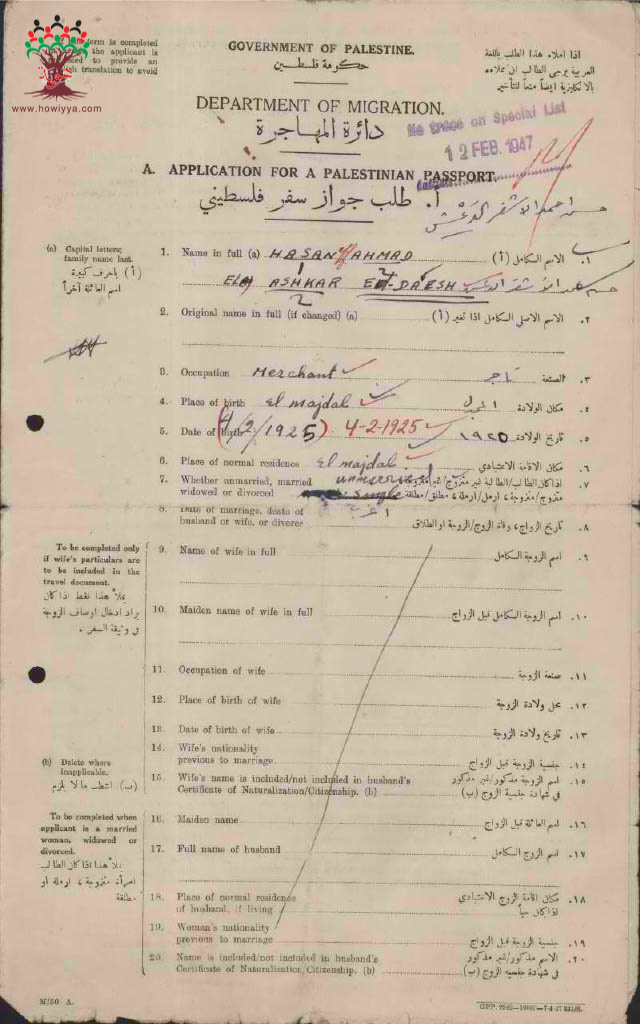 term is completed
the applicant is
to provide an
translation to avoid
www.howiyya.com
GOVERNMENT OF PALESTINE.
حكومة فلسطين
اذا املاء هذا الطلب باللغة
العربية يرجى الطالب ان يملاءه
بالانكليزية ايضاً منعاً للتأخير
DEPARTMENT OF MIGRATION.
دائرة المهاجرة
No trace on Special List
12 FEB. 1947
A. APPLICATION FOR A PALESTINIAN PASSPORT.
أ. طلب جواز سفر فلسطيني
حسن احمد الاشقر
(a) Capital letters;
family name last.
(أ) باحرف كبيرة
اسم العائلة آخراً
1. Name in full (a) HASAN AHMAD
١. الاسم الكامل (أ)
EL ASHKAR EL-DAESH
2. Original name in full (if changed) (a)
٢. الاسم الاصلي الكامل اذا تغير (أ)
3. Occupation Merchant
٣. الصنعة تاجر
4. Place of birth El majdal
٤. مكان الولادة المجدل
5. Date of birth (4/2/1925). 4-2-1925
٥. تاريخ الولادة ١٩٢٥
6. Place of normal residence El majdal
٦. مكان الاقامة الاعتيادي
7. Whether unmarried, married
widowed or divorced
single
٧. اذا كان الطالب/الطالبة غير متزوج/غير متزوجة
متزوج/متزوجة، ارمل/ارملة، مطلق/مطلقة
8. Date of marriage, death of
husband or wife, or divorce
اعزب
٨. تاريخ الزواج، وفاة الزوج/الزوجة او الطلاق
To be completed only
if wife's particulars are
to be included in the
travel document.
يملأ هذا فقط اذا كان
يراد ادخال اوصاف الزوجة
في وثيقة السفر.
9. Name of wife in full
٩. اسم الزوجة الكامل
10. Maiden name of wife in full
١٠. اسم الزوجة الكامل قبل الزواج
11. Occupation of wife
١١. صنعة الزوجة
12. Place of birth of wife
١٢. محل ولادة الزوجة
13. Date of birth of wife
١٣. تاريخ ولادة الزوجة
14. Wife's nationality
previous to marriage
١٤. جنسية الزوجة قبل الزواج
(b) Delete where
inapplicable.
(ب) اشطب ما لا يلزم
15. Wife's name is included/not included in husband's
Certificate of Naturalization/Citizenship. (b)
١٥. اسم الزوجة مذكور/غير مذكور
في شهادة جنسية الزوج (ب)
To be completed when
applicant is a married
woman, widowed or
divorced.
يملأ هذا اذا كان الطالب
امرأة متزوجة، ارملة او
مطلقة
16. Maiden name
١٦. اسم العائلة قبل الزواج
17. Full name of husband
١٧. اسم الزوج الكامل
18. Place of normal residence
of husband, if living
١٨. مكان اقامة الزوج الاعتيادي
اذا كان حياً
19. Woman's nationality
previous to marriage
١٩. جنسية الزوجة قبل الزواج
20. Name is included/not included in husband's
Certificate of Naturalization/Citizenship. (b)
٢٠. الاسم مذكور/غير مذكور
في شهادة جنسية الزوج (ب)
M/50 A.